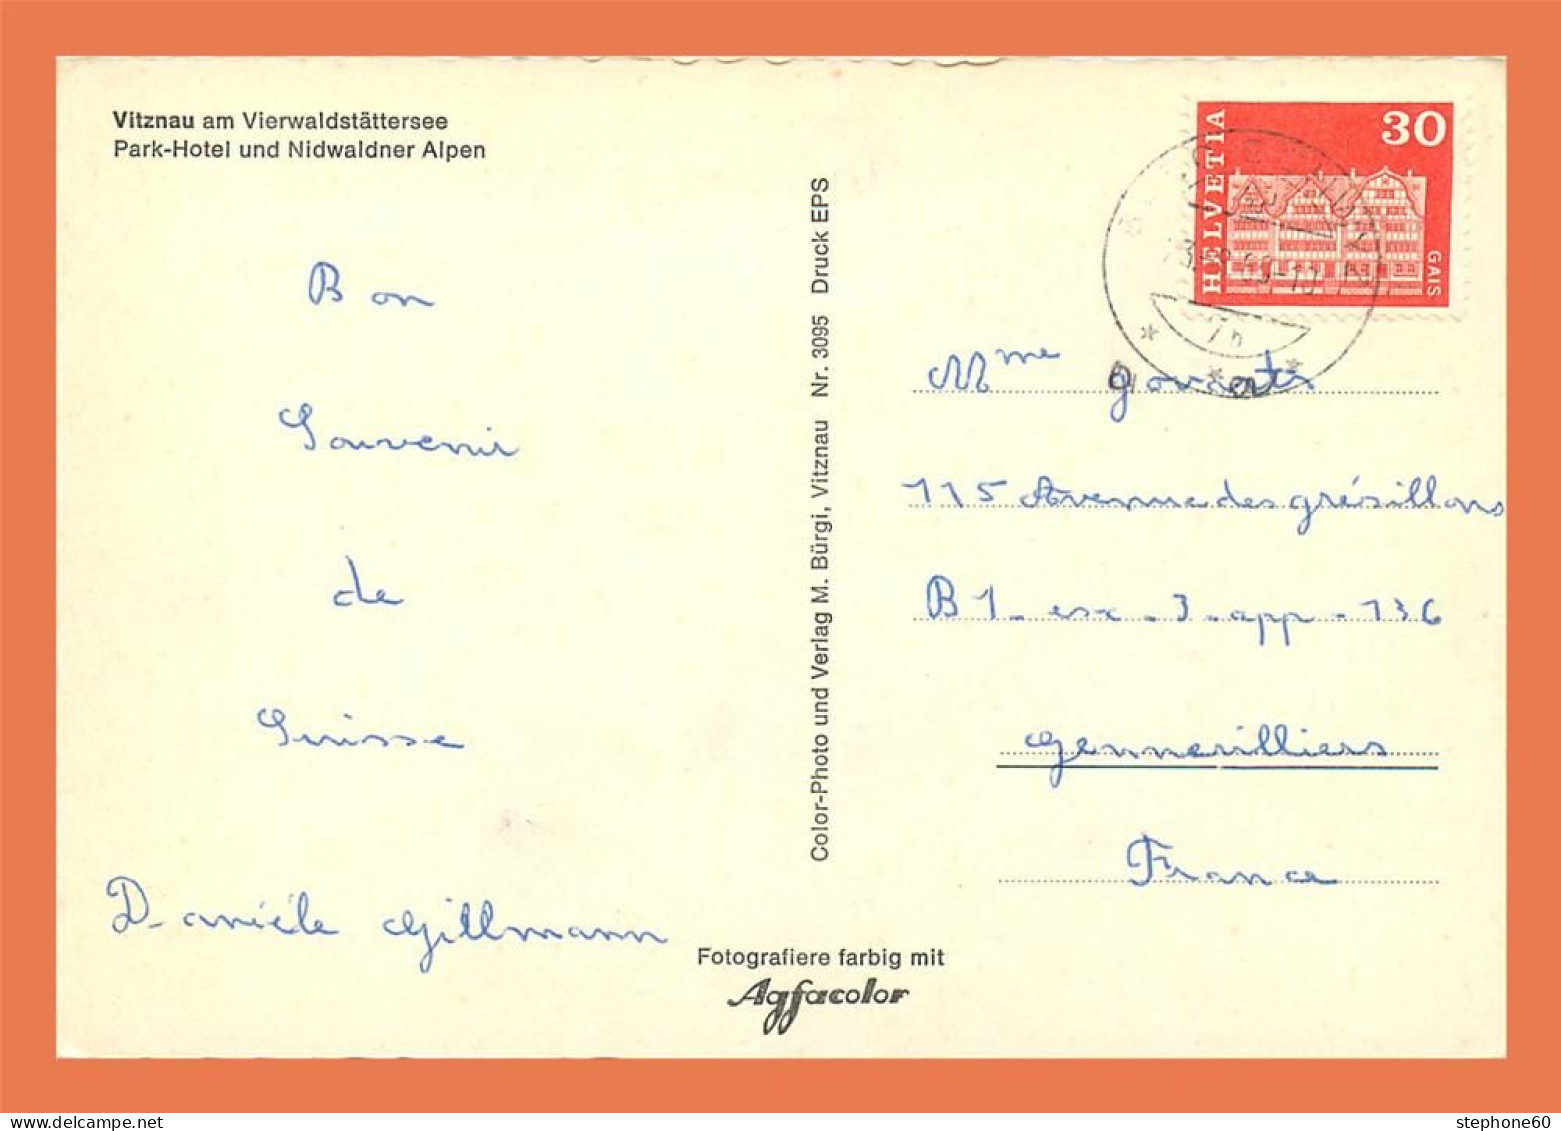 Vitznau am Vierwaldstättersee
Park-Hotel und Nidwaldner Alpen
Bon
Souvenir
de
Suisse
Danièle Gillmann
Color-Photo und Verlag M. Bürgi, Vitznau Nr. 3095 Druck EPS
Fotografiere farbig mit
Agfacolor
HELVETIA
30
GAIS
Mme
115 Avenue des grésillons
B1 - esc - 3 - app - 136
Gennevilliers
France
stephone60